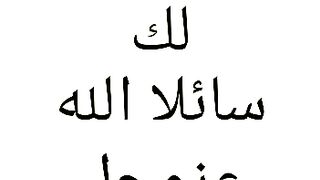 لك
سائلا الله